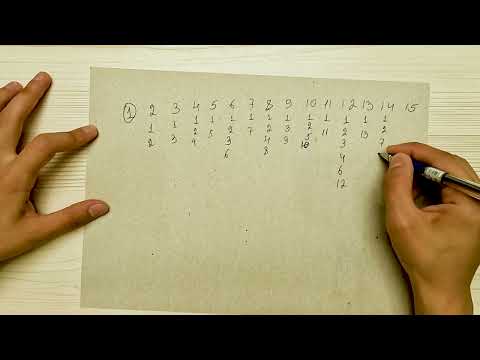 1 2 3 4 5 6 7 8 9 10 11 12 13 14 15
1 1 1 1 1 1 1 1 1 1 1 1 1
2 3 2 5 2 7 2 3 2 11 2 13 2
4 3 4 9 5 3 7
6 8 10 4
6
12